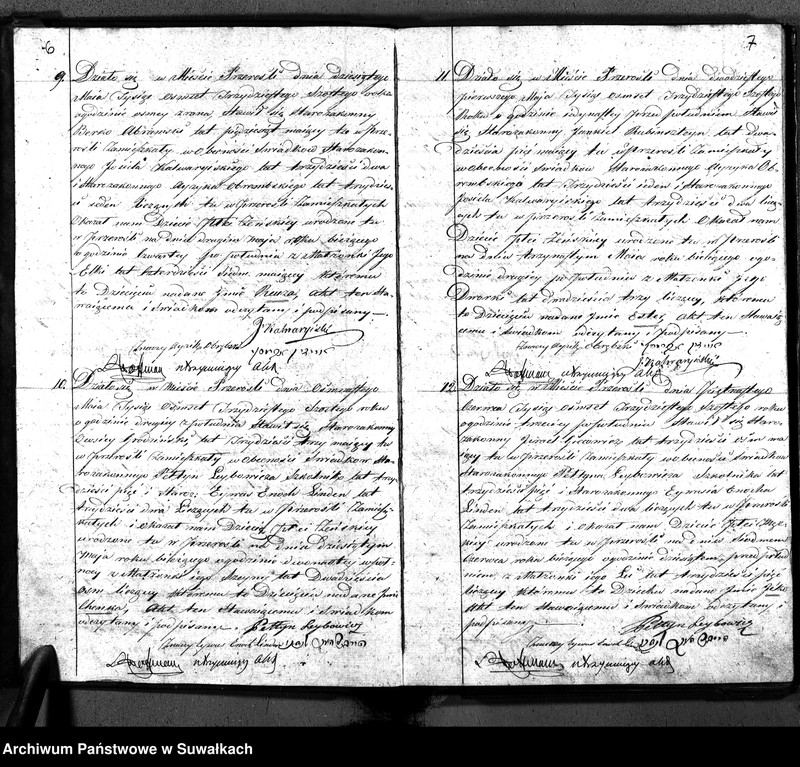 6
9. Działo się w Mieście Przerośli dnia dziesiątego
Maja Tysiąc osmset Trzydziestego Szostego roku
ogodzinie osmey zrana Stawił się Starozakonny
Berko Abramski lat maiący tu w Prze-
rośli Zamieszkały w obecności Swiadków Starozakon-
nego Josiela Kalwaryiskiego lat trzydzieści dwa
i Starozakonnego Ayzyka Obrembskiego lat trzydzieś-
ci ieden liczących tu w Przerośli Zamieszkałych
Okazał nam Dziecie Płci Zeńskiey urodzone tu
w Przerośli na dniu drugim Maja roku bieżącego
o godzinie czwartey po południu z Małżonki Jego
Elki lat czterdzieści siedm maiącey któremu
to Dziecięciu nadano Jmie Akt ten Sta-
waiącemu i Swiadkom odczytany i podpisany —
J Kalwaryiski
Hoffmann utrzymuiący akta
10. Działo się w Mieście Przerośli dnia Osmnastego
Maia Tysiąc Osmset Trzydziestego Szostego roku
o godzinie drugiey z południa Stawił się Starozakonny
Grodziński lat Trzydzieści trzy maiący tu
w Przerośli Zamieszkały w obecności Swiadków Sta-
rozakonnego Peltyn Leybowicza Szkolnika lat trzy-
dzieści pięć i Staroz: Eynus Enoch Linden lat
trzydzieści dwa liczących tu w Przerośli Zamiesz-
kałych i okazał nam Dziecie Płci Zeńskiey
urodzone tu w Przerośli na dniu Dziesiątym
Maja roku bieżącego ogodzinie dwunastey w puł-
nocy z Małżonki iego Szeyny lat Dwadzieścia
osm liczącey któremu to Dziecięciu nadane Jmie
Akt ten Stawaiącemu i Swiadkom
odczytany i podpisany — Peltyn Leybowicz
Hoffmann utrzymuiący akta
7
11. Działo się w Mieście Przerośli dnia dwudziestego
pierwszego Maja Tysiąc osmset Trzydziestego Szostego
Roku o godzinie iedynastey przed południem Stawił
się Starozakonny Jankiel Rubinszteyn lat dwa-
dzieścia pięć maiący tu w Przerośli Zamieszkały
w obecności swiadków Starozakonnego Ayzyka Ob-
rembskiego lat Trzydzieści ieden i Starozakonnego
Josiela Kalwaryiskiego lat trzydzieści dwa licz-
ących tu w Przerośli Zamieszkałych Okazał nam
Dziecie Płci Zeńskiey urodzone tu w Przerośli
na dniu trzynastym Maia roku bieżącego ogo-
dzinie drugiey po południu z Małżonki Jego
Dwarki lat dwadzieścia trzy liczącey, któremu
to Dziecięciu nadano Jmie Ester, Akt ten Stawaią-
cemu i swiadkom odczytany i podpisany —
J. Kalwaryiski
Hoffmann utrzymuiący akta
12. Działo się w Mieście Przerośli dnia Piętnastego
Czerwca Tysiąc Osmset Trzydziestego Szostego roku
ogodzinie trzeciey popołudniu Stawił się Staro-
zakonny lat trzydzieści maią-
cy tu w Przerośli Zamieszkały w obecności swiadków
Starozakonnego Peltyna Leybowicza Szkolnika lat
trzydzieści pięć i Starozakonnego Eynusia Enocha
Linden lat trzydzieści dwa liczących tu w Przerośli
Zamieszkałych i okazał nam Dziecie Płci Męz-
kiey urodzone tu w Przerośli na dniu siodmem
Czerwca roku bieżącego ogodzinie dziesiątey przed połud-
niem z Małżonki iego lat trzydzieści pięć
liczącey któremu to Dziecku nadano Jmie
Akt ten Stawaiącemu i swiadkom odczytany i
podpisany — Peltyn Leybowicz
Hoffmann utrzymuiący akta
Archiwum Państwowe w Suwałkach